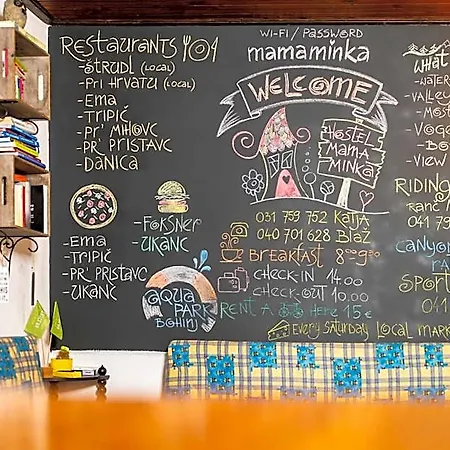 RESTAURANTS
-ŠTRUDL (LOCAL)
-PRI HRVATU (LOCAL)
-EMA
-TRIPIČ
-PR' MIHOVC
-PR' PRISTAVC
-DANICA
-EMA
-TRIPIČ
-PR' PRISTAVC
-UKANC
-FOKSNER
-UKANC
AQUA
PARK
BOHINJ
WI-FI / PASSWORD
mamaminka
WELCOME
HOSTEL
MAMA
MINKA
031 759 752 KATJA
040 701 628 BLAŽ
BREAKFAST
CHECK-IN 14.00
CHECK-OUT 10.00
RENT A HERE 15€
EVERY SATURDAY LOCAL MARK
WHAT
-WATER
-VALLEY
-MOST
-VOGE
-BO
-VIEW
RIDING
RANČ M
041 79
CANYON
RA
SPORT
041